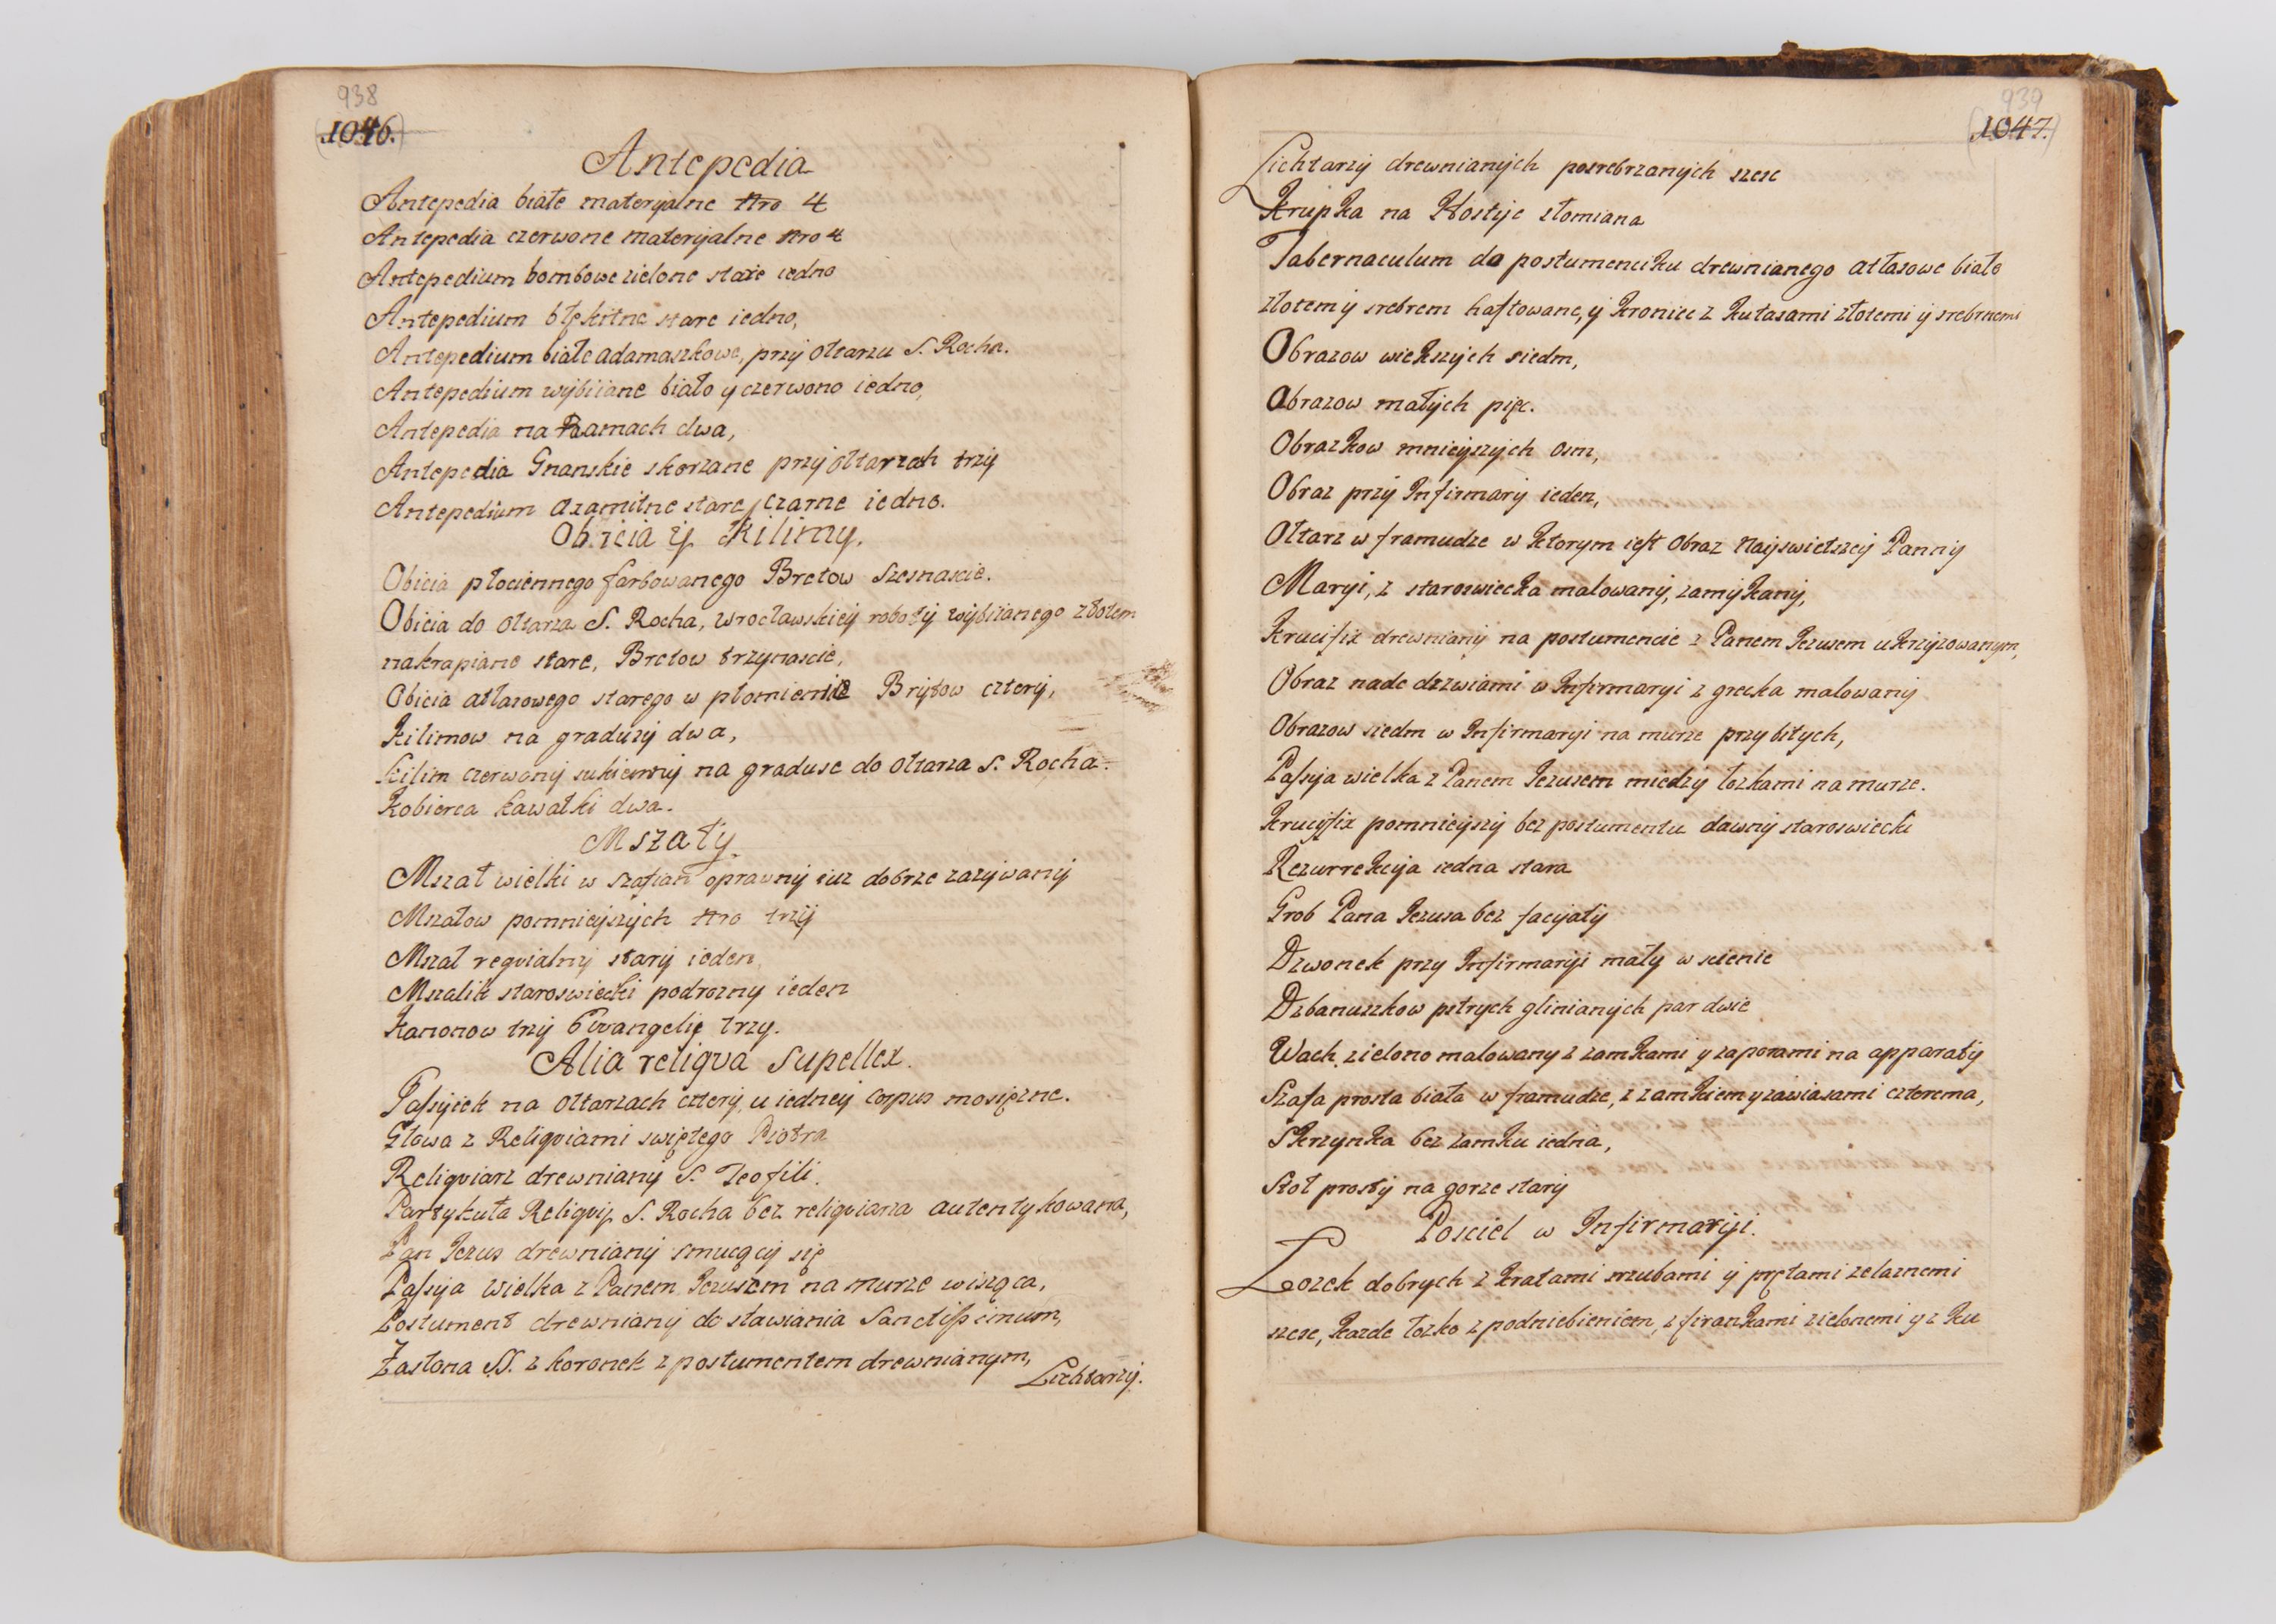 938
1046.
Antepedia
Antepedia białe materyalne Nro 4
Antepedia czerwone materyalne Nro 4
Antepedium bombowe zielone stare iedno
Antepedium błękitne stare iedno,
Antepedium białe adamaszkowe, przy oltarzu S. Rocha.
Antepedium wybiiane biało y czerwono iedno,
Antepedia na Ramach dwa,
Antepedia Gnanskie skorzane przy oltarzah trzy
Antepedium axamitne stare, czarne iedno.
Obicia y Kilimy.
Obicia płociennego farbowanego Bretow Szesnascie.
Obicia do oltarza S. Rocha, wrocławskiey roboty wybiianego złotem
nakrapiane stare, Bretow trzynascie,
Obicia atłasowego starego w płomienie Brytow cztery,
Kilimow na gradusy dwa,
Kilim czerwony sukienny na graduse do oltarza S. Rocha.
Kobierca kawałki dwa.
Mszały
Mszał wielki w Szafian oprawny iuz dobrze zazywany
Mszałow pomnieyszych Nro trzy
Mszał reqvialny stary ieden
Mszalik staroswiecki podrozny ieden
Kanonow trzy Ewangelię trzy.
Alia reliqva Supellex.
Passyiek na oltarzach cztery, u iedney corpus mosięzne.
Głowa z Reliqviami swiętego Piotra
Reliqviarz drewniany S. Teofili.
Partykuła Reliqvij S. Rocha bez reliqviarza autentykowana,
Pan Jezus drewniany smucący się
Passya wielka z Panem Jezusem na murze wisząca,
Postument drewniany do stawiania Sanctissimum,
Zasłona SS. z koronek z postumentem drewnianym,
Lichtarzy.
939
1047.
Lichtarzy drewnianych posrebrzanych szesc
Krupka na Hostye słomiana
Tabernaculum do postumenciku drewnianego atłasowe białe
złotem y srebrem haftowane, y kronice z kutasami złotemi y srebrnemi
Obrazow wiekszych siedm,
Obrazow małych pięc.
Obrazkow mnieyszych osm,
Obraz przy Infirmary ieden,
Ołtarz w framudze w ktorym iest Obraz Nayswietszey Panny
Maryi, z staroswiecka malowany, zamykany,
Krucifix drewniany na postumencie z Panem Jezusem ukrzyzowanym,
Obraz nade drzwiami w Infirmaryi z grecka malowany
Obrazow siedm w Infirmaryi na murze przybitych,
Passya wielka z Panem Jezusem miedzy łozkami na murze.
Krucyfix pomnieyszy bez postumentu dawny staroswiecki
Rezurrekcya iedna stara
Grob Pana Jezusa bez facyaty
Dzwonek przy Infirmaryi mały w scienie
Dzbanuszkow pstrych glinianych par dwie
Wach zielono malowany z zamkami y zaporami na apparaty
Szafa prosta biała w framudze, z zamkiem y zawiasami czterema,
Skrzynka bez zamku iedna,
Stoł prosty na gorze stary
Posciel w Infirmaryi.
Lozek dobrych z kratami srzubami y prętami zelaznemi
szesc, kazde łozko z podniebieniem, z firankami zielonemi y z ku